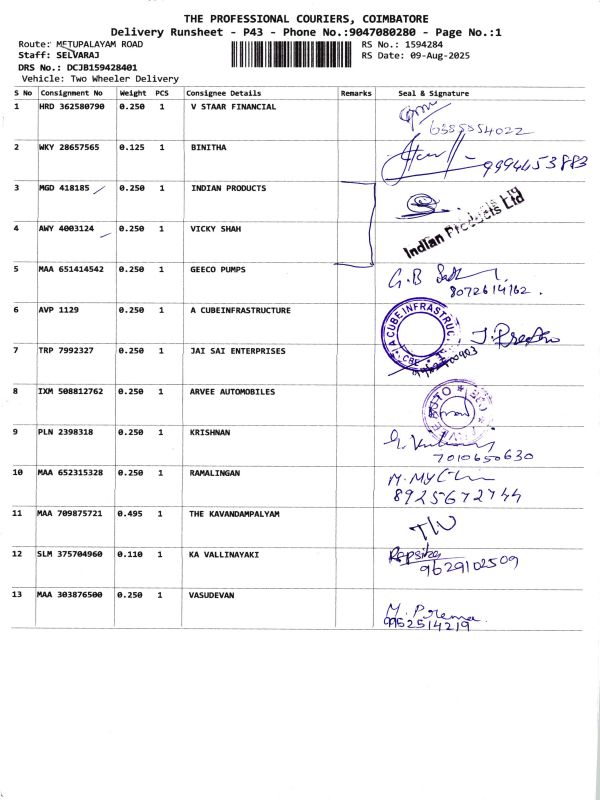 THE PROFESSIONAL COURIERS, COIMBATORE
Delivery Runsheet - P43 - Phone No.:9047080280 - Page No.:1
Route: METUPALAYAM ROAD RS No.: 1594284
Staff: SELVARAJ RS Date: 09-Aug-2025
DRS No.: DCJB159428401
Vehicle: Two Wheeler Delivery
S No Consignment No Weight PCS Consignee Details Remarks Seal & Signature
1 HRD 362580790 0.250 1 V STAAR FINANCIAL
2 WKY 28657565 0.125 1 BINITHA 9994453883
3 MGD 418185 0.250 1 INDIAN PRODUCTS
Indian Products Ltd
4 AWY 4003124 0.250 1 VICKY SHAH
5 MAA 651414542 0.250 1 GEECO PUMPS G.B
8072614162.
6 AVP 1129 0.250 1 A CUBEINFRASTRUCTURE
A CUBE INFRASTRUC
CBE
7 TRP 7992327 0.250 1 JAI SAI ENTERPRISES
8 IXM 508812762 0.250 1 ARVEE AUTOMOBILES
9 PLN 2398318 0.250 1 KRISHNAN
7010650630
10 MAA 652315328 0.250 1 RAMALINGAN
8925672744
11 MAA 709875721 0.495 1 THE KAVANDAMPALYAM
12 SLM 375704960 0.110 1 KA VALLINAYAKI
9629102509
13 MAA 303876500 0.250 1 VASUDEVAN
M. Prema
9952514219